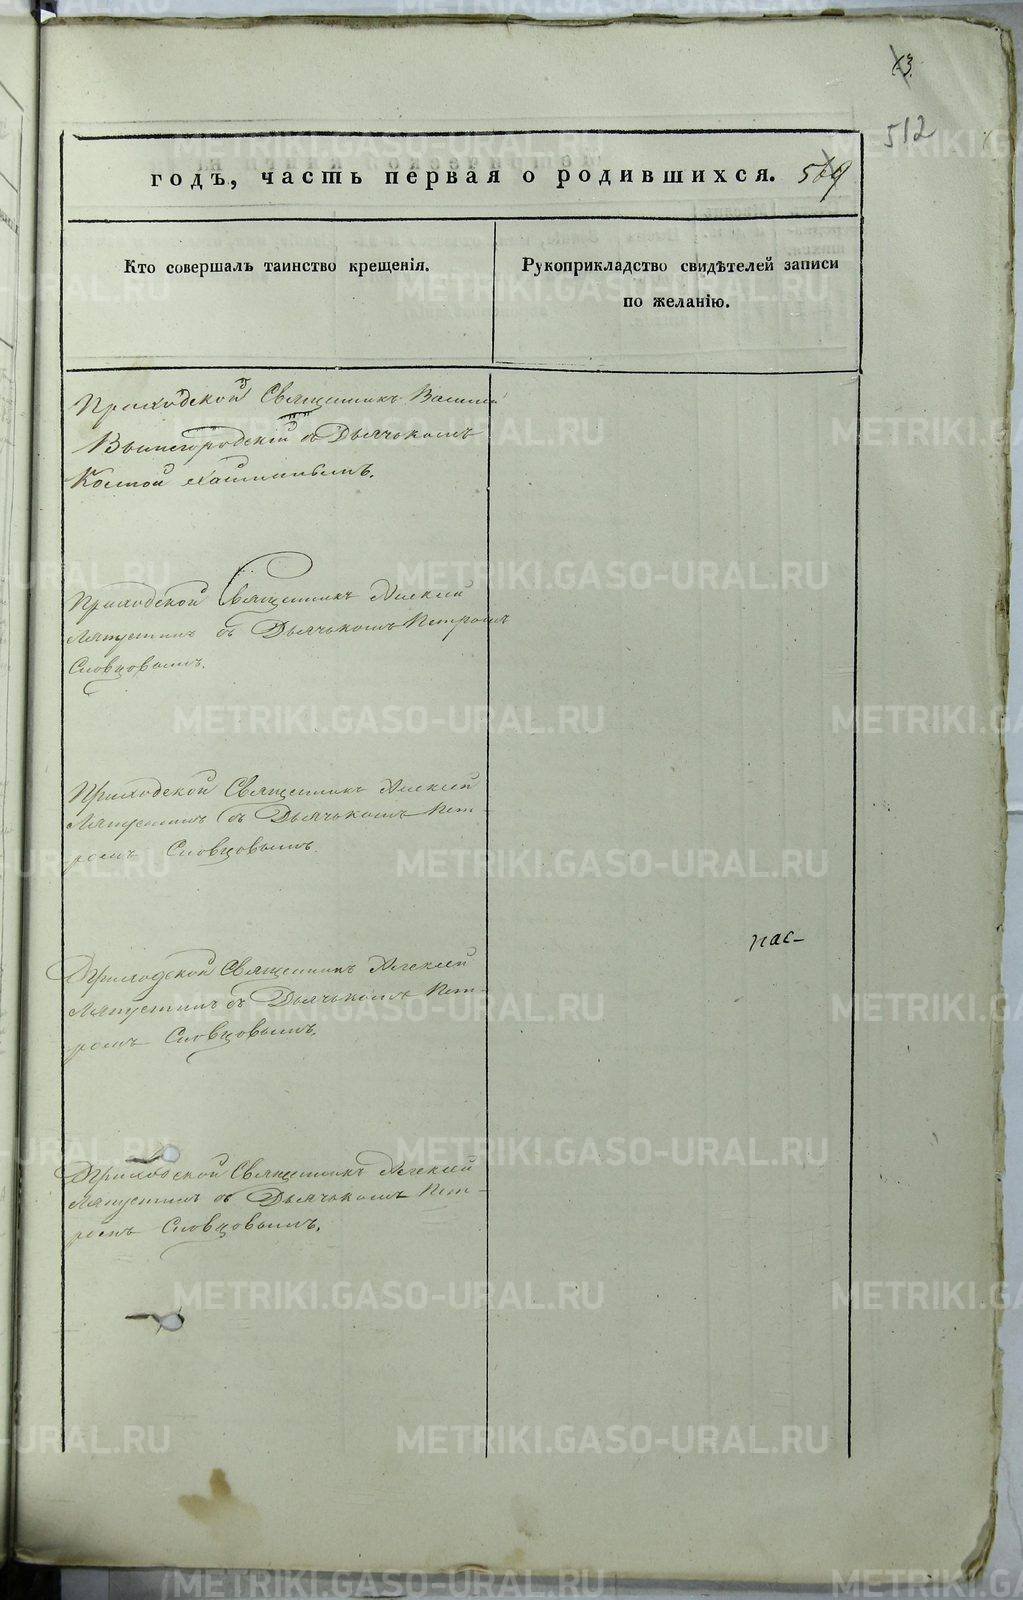 13.
512
годъ, часть первая о родившихся. 509
Кто совершалъ таинство крещенія.
Рукоприкладство свидѣтелей записи
по желанію.
Приходской Священникъ Василій
Вышегородскій съ Дьячькомъ
Космой
Приходской Священникъ Алексей
Ляпустинъ съ Дьячькомъ Петромъ
Словцовымъ.
Приходской Священникъ Алексей
Ляпустинъ съ Дьячькомъ Пет-
ромъ Словцовымъ.
нас-
Приходской Священникъ Алексей
Ляпустинъ съ Дьячькомъ Пет-
ромъ Словцовымъ.
Приходской Священникъ Алексей
Ляпустинъ съ Дьячькомъ Пет-
ромъ Словцовымъ.
METRIKI.GASO-URAL.RU